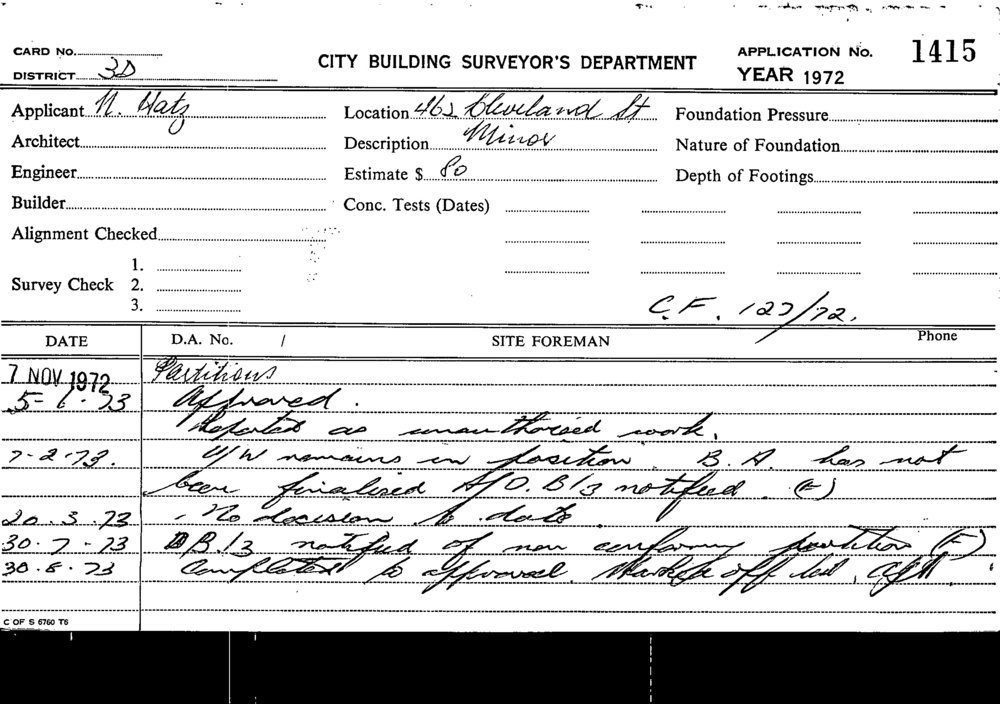 CARD No.
DISTRICT 3D
CITY BUILDING SURVEYOR'S DEPARTMENT
APPLICATION No. 1415
YEAR 1972
Applicant N. Hatz
Location 462 Cleveland St
Foundation Pressure
Architect
Description Minor
Nature of Foundation
Engineer
Estimate $ 80
Depth of Footings
Builder
Conc. Tests (Dates)
Alignment Checked
Survey Check 1.
2.
3.
C.F. 127/72.
DATE D.A. No. / SITE FOREMAN Phone
7 NOV 1972 Partitions
5-1-73 Approved.
Reported as unauthorised work.
7-2-73. U/W remains in position. B.A. has not
been finalised A/O. B/3 notified. (F)
20.3.73 No decision to date.
30.7-73 B/3 notified of non conforming partition (F)
30.8.73 Completed to approval. off
C OF S 6760 T6